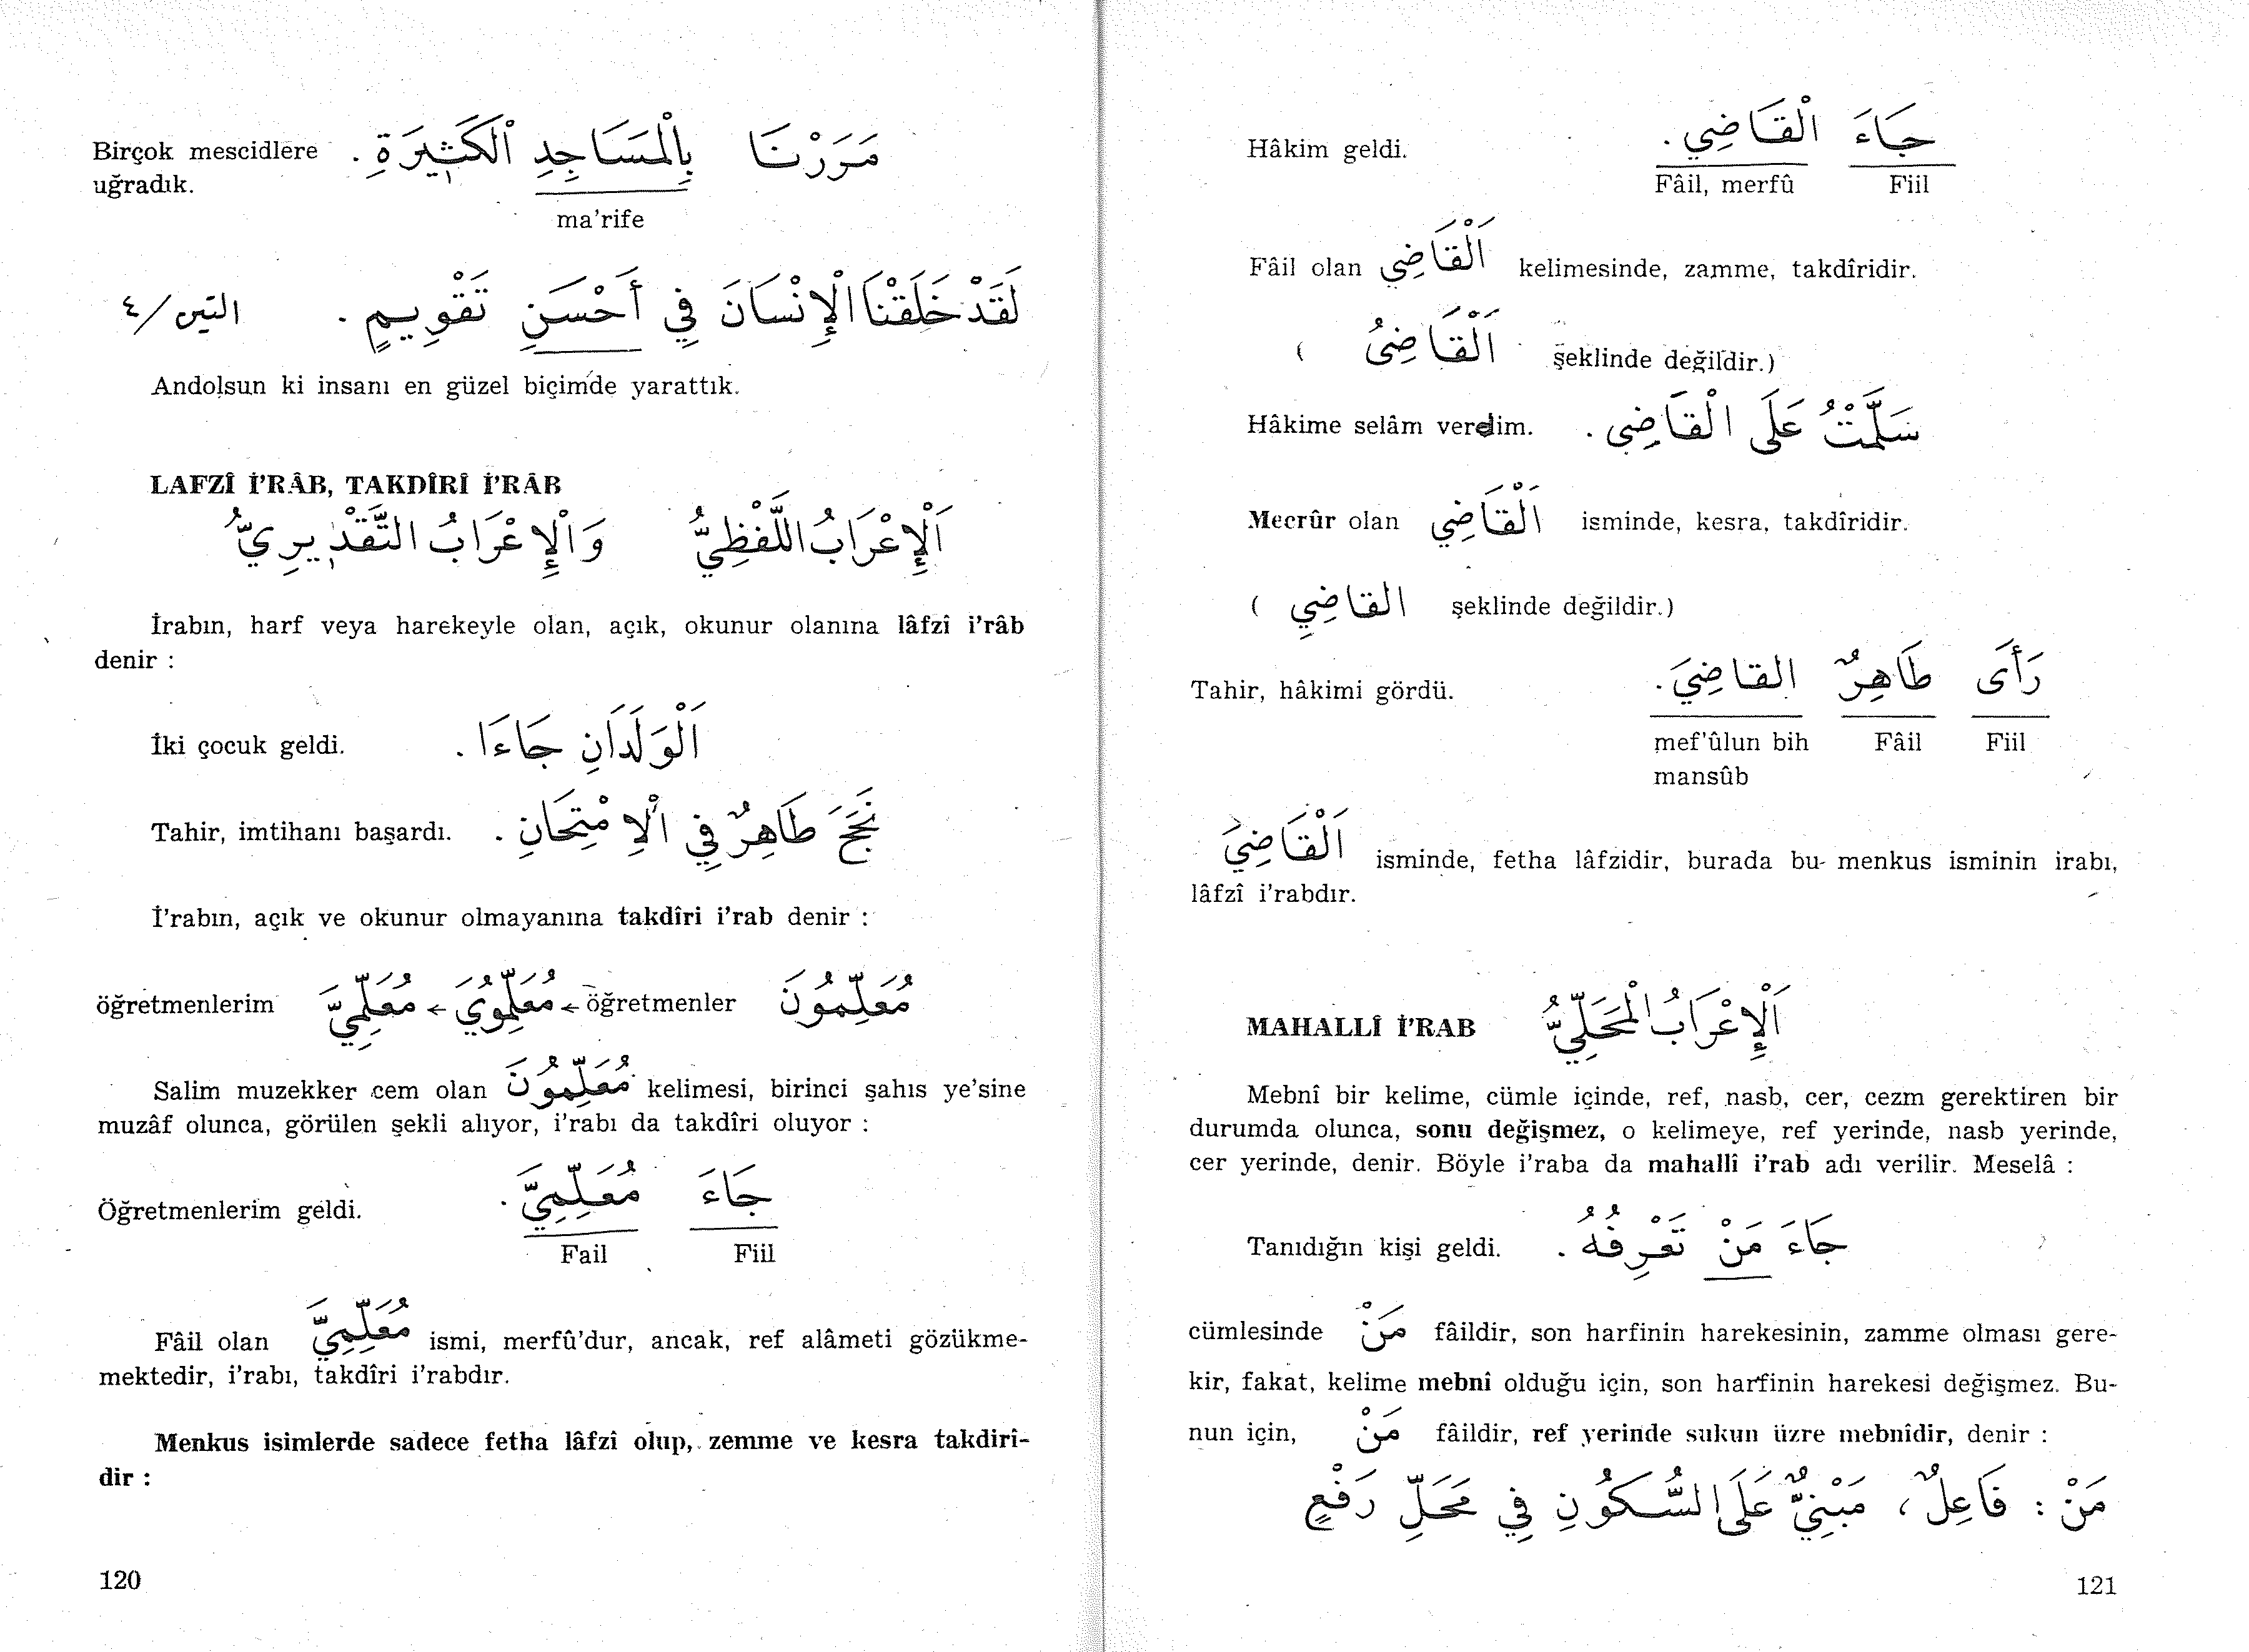 Birçok mescidlere uğradık. مَرَرْنَا بِالْمَسَاجِدِ الْكَثِيرَةِ .
ma'rife
لَقَدْ خَلَقْنَا الْإِنْسَانَ فِي أَحْسَنِ تَقْوِيمٍ . التين/٤
Andolsun ki insanı en güzel biçimde yarattık.
LAFZÎ İ'RÂB, TAKDÎRÎ İ'RÂB
اَلْإِعْرَابُ اللَّفْظِيُّ وَالْإِعْرَابُ التَّقْدِيرِيُّ
İrabın, harf veya harekeyle olan, açık, okunur olanına lâfzî i'râb
denir :
İki çocuk geldi. اَلْوَلَدَانِ جَاءَا .
Tahir, imtihanı başardı. نَجَحَ طَاهِرٌ فِي الْاِمْتِحَانِ .
İ'rabın, açık ve okunur olmayanına takdîri i'rab denir :
مُعَلِّمُونَ öğretmenler ← مُعَلِّمُويَ ← مُعَلِّمِيَّ öğretmenlerim
Salim muzekker cem olan مُعَلِّمُونَ kelimesi, birinci şahıs ye'sine
muzâf olunca, görülen şekli alıyor, i'rabı da takdîri oluyor :
Öğretmenlerim geldi. جَاءَ مُعَلِّمِيَّ .
Fail Fiil
Fâil olan مُعَلِّمِيَّ ismi, merfû'dur, ancak, ref alâmeti gözükme-
mektedir, i'rabı, takdîri i'rabdır.
Menkus isimlerde sadece fetha lâfzî olup, zemme ve kesra takdirî-
dir :
120
Hâkim geldi. جَاءَ الْقَاضِي .
Fâil, merfû Fiil
Fâil olan اَلْقَاضِي kelimesinde, zamme, takdîridir.
( اَلْقَاضِىُ şeklinde değildir.)
Hâkime selâm verdim. سَلَّمْتُ عَلَى الْقَاضِي .
Mecrûr olan اَلْقَاضِي isminde, kesra, takdîridir.
( القاضِيِ şeklinde değildir.)
Tahir, hâkimi gördü. رَأَى طَاهِرٌ القاضِيَ .
mef'ûlun bih Fâil Fiil
mansûb
اَلْقَاضِيَ isminde, fetha lâfzidir, burada bu menkus isminin irabı,
lâfzî i'rabdır.
MAHALLÎ İ'RAB اَلْإِعْرَابُ الْمَحَلِّيُّ
Mebnî bir kelime, cümle içinde, ref, nasb, cer, cezm gerektiren bir
durumda olunca, sonu değişmez, o kelimeye, ref yerinde, nasb yerinde,
cer yerinde, denir. Böyle i'raba da mahallî i'rab adı verilir. Meselâ :
Tanıdığın kişi geldi. جَاءَ مَنْ تَعْرِفُهُ .
cümlesinde مَنْ fâildir, son harfinin harekesinin, zamme olması gere-
kir, fakat, kelime mebnî olduğu için, son harfinin harekesi değişmez. Bu-
nun için, مَنْ fâildir, ref yerinde sukun üzre mebnîdir, denir :
مَنْ : فَاعِلٌ ، مَبْنِيٌّ عَلَى السُّكُونِ فِي مَحَلِّ رَفْعٍ
121